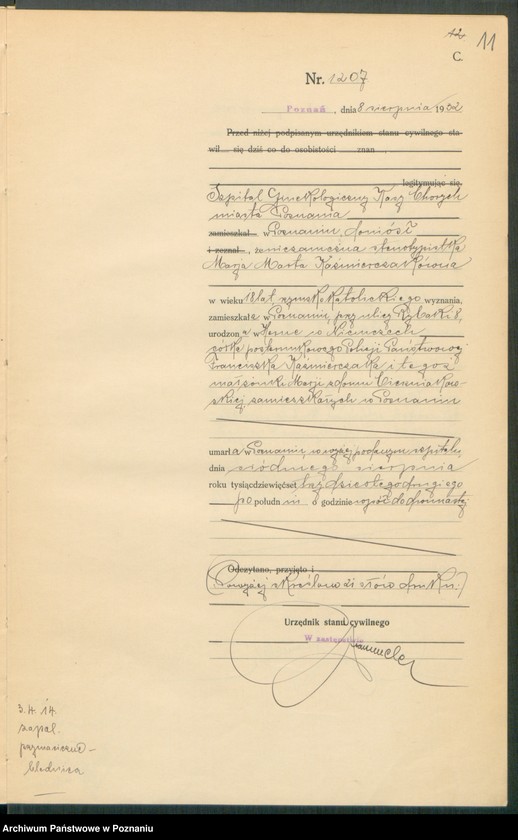 12
11
C.
Nr. 1207
Poznań, dnia 8 sierpnia 1932
Przed niżej podpisanym urzędnikiem stanu cywilnego sta-
wił się dziś co do osobistości znan
legitymując się.
Szpital Ginekologiczny Kasy Chorych
miasta Poznania
zamieszkał w Poznaniu, doniósł
i zeznał, że niezamężna stenotypistka
Marja Marta Kaźmierczakówna
w wieku 18 lat, rzymsko katolickiego wyznania,
zamieszkała w Poznaniu, przy ulicy Rybaki 8,
urodzona w Herne w Niemczech,
córka posterunkowego Policji Państwowej
Franciszka Kaźmierczaka i tegoż
małżonki Marji z domu
zamieszkałych w Poznaniu
umarła w Poznaniu, w wyżej podanym szpitalu,
dnia siódmego sierpnia
roku tysiącdziewięćset trzydziestego drugiego
po południu o godzinie wpół do dwunastej
Odczytano, przyjęto i
(Powyżej skreślono 21 słów druku.)
Urzędnik stanu cywilnego
W zastępstwie
3.4.14.
zapal.
błednica
Archiwum Państwowe w Poznaniu